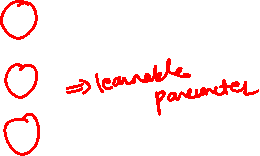 ⇒ learnable
parameter